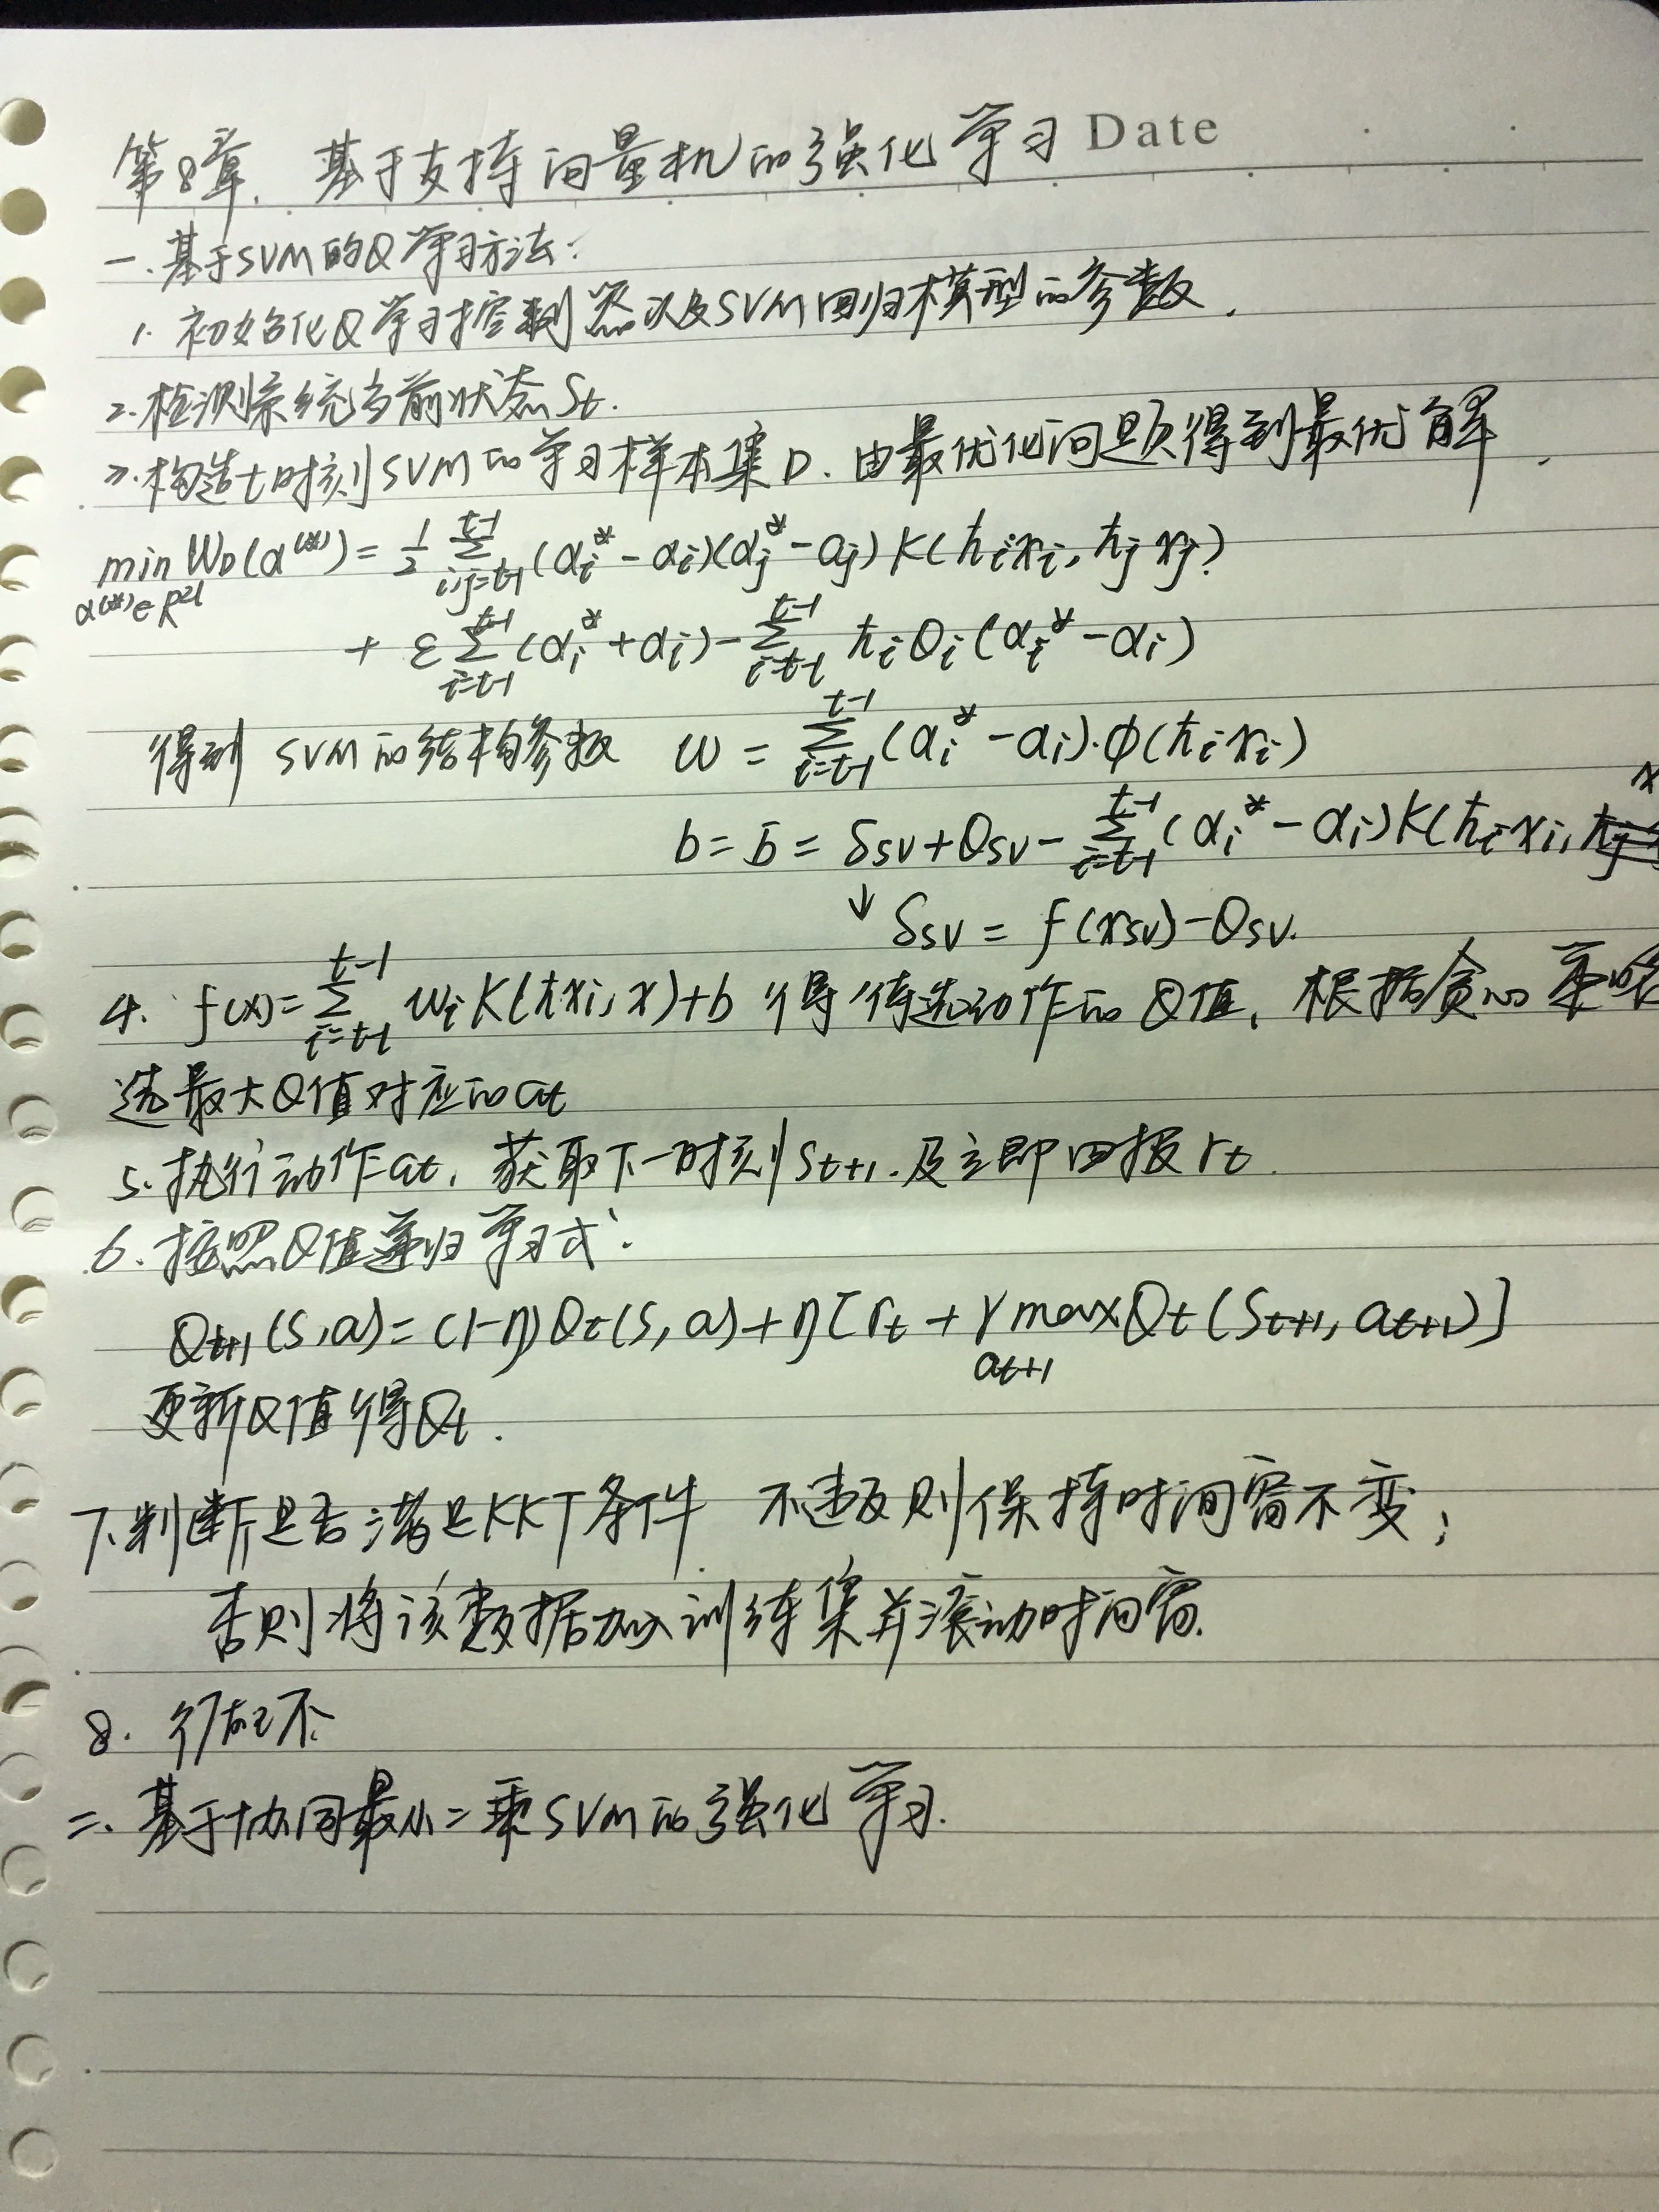 第8章. 基于支持向量机的强化学习 Date
一. 基于SVM的Q学习方法:
1. 初始化Q学习控制器以及SVM回归模型的参数.
2. 检测系统当前状态St.
3. 构造t时刻SVM的学习样本集D. 由最优化问题得到最优解.
min W_D(α^(*)) = 1/2 Σ_{i,j=t-l}^{t-1} (α_i^* - α_i)(α_j^* - α_j) K(ħ_i x_i, ħ_j x_j)
α^(*)∈R^2l
+ ε Σ_{i=t-l}^{t-1} (α_i^* + α_i) - Σ_{i=t-l}^{t-1} ħ_i Q_i (α_i^* - α_i)
得到 SVM的结构参数 w = Σ_{i=t-l}^{t-1} (α_i^* - α_i)·φ(ħ_i x_i)
b = b̄ = δsv + Qsv - Σ_{i=t-l}^{t-1} (α_i^* - α_i) K(ħ_i x_i, x
↓ δsv = f(xsv) - Qsv.
4. f(x) = Σ_{i=t-l}^{t-1} w_i K(ħ x_i, x) + b 得待选动作的Q值, 根据贪心策略
选最大Q值对应的at
5. 执行动作at, 获取下一时刻St+1. 及立即回报rt.
6. 按照Q值递归学习式:
Q_{t+1}(s,a) = (1-η)Q_t(s,a) + η[r_t + γ max Q_t(S_{t+1}, a_{t+1})]
a_{t+1}
更新Q值得Qt.
7. 判断是否满足KKT条件 不违反则保持时间窗不变;
否则将该数据加入训练集并滚动时间窗.
8.
二. 基于协同最小二乘SVM的强化学习.